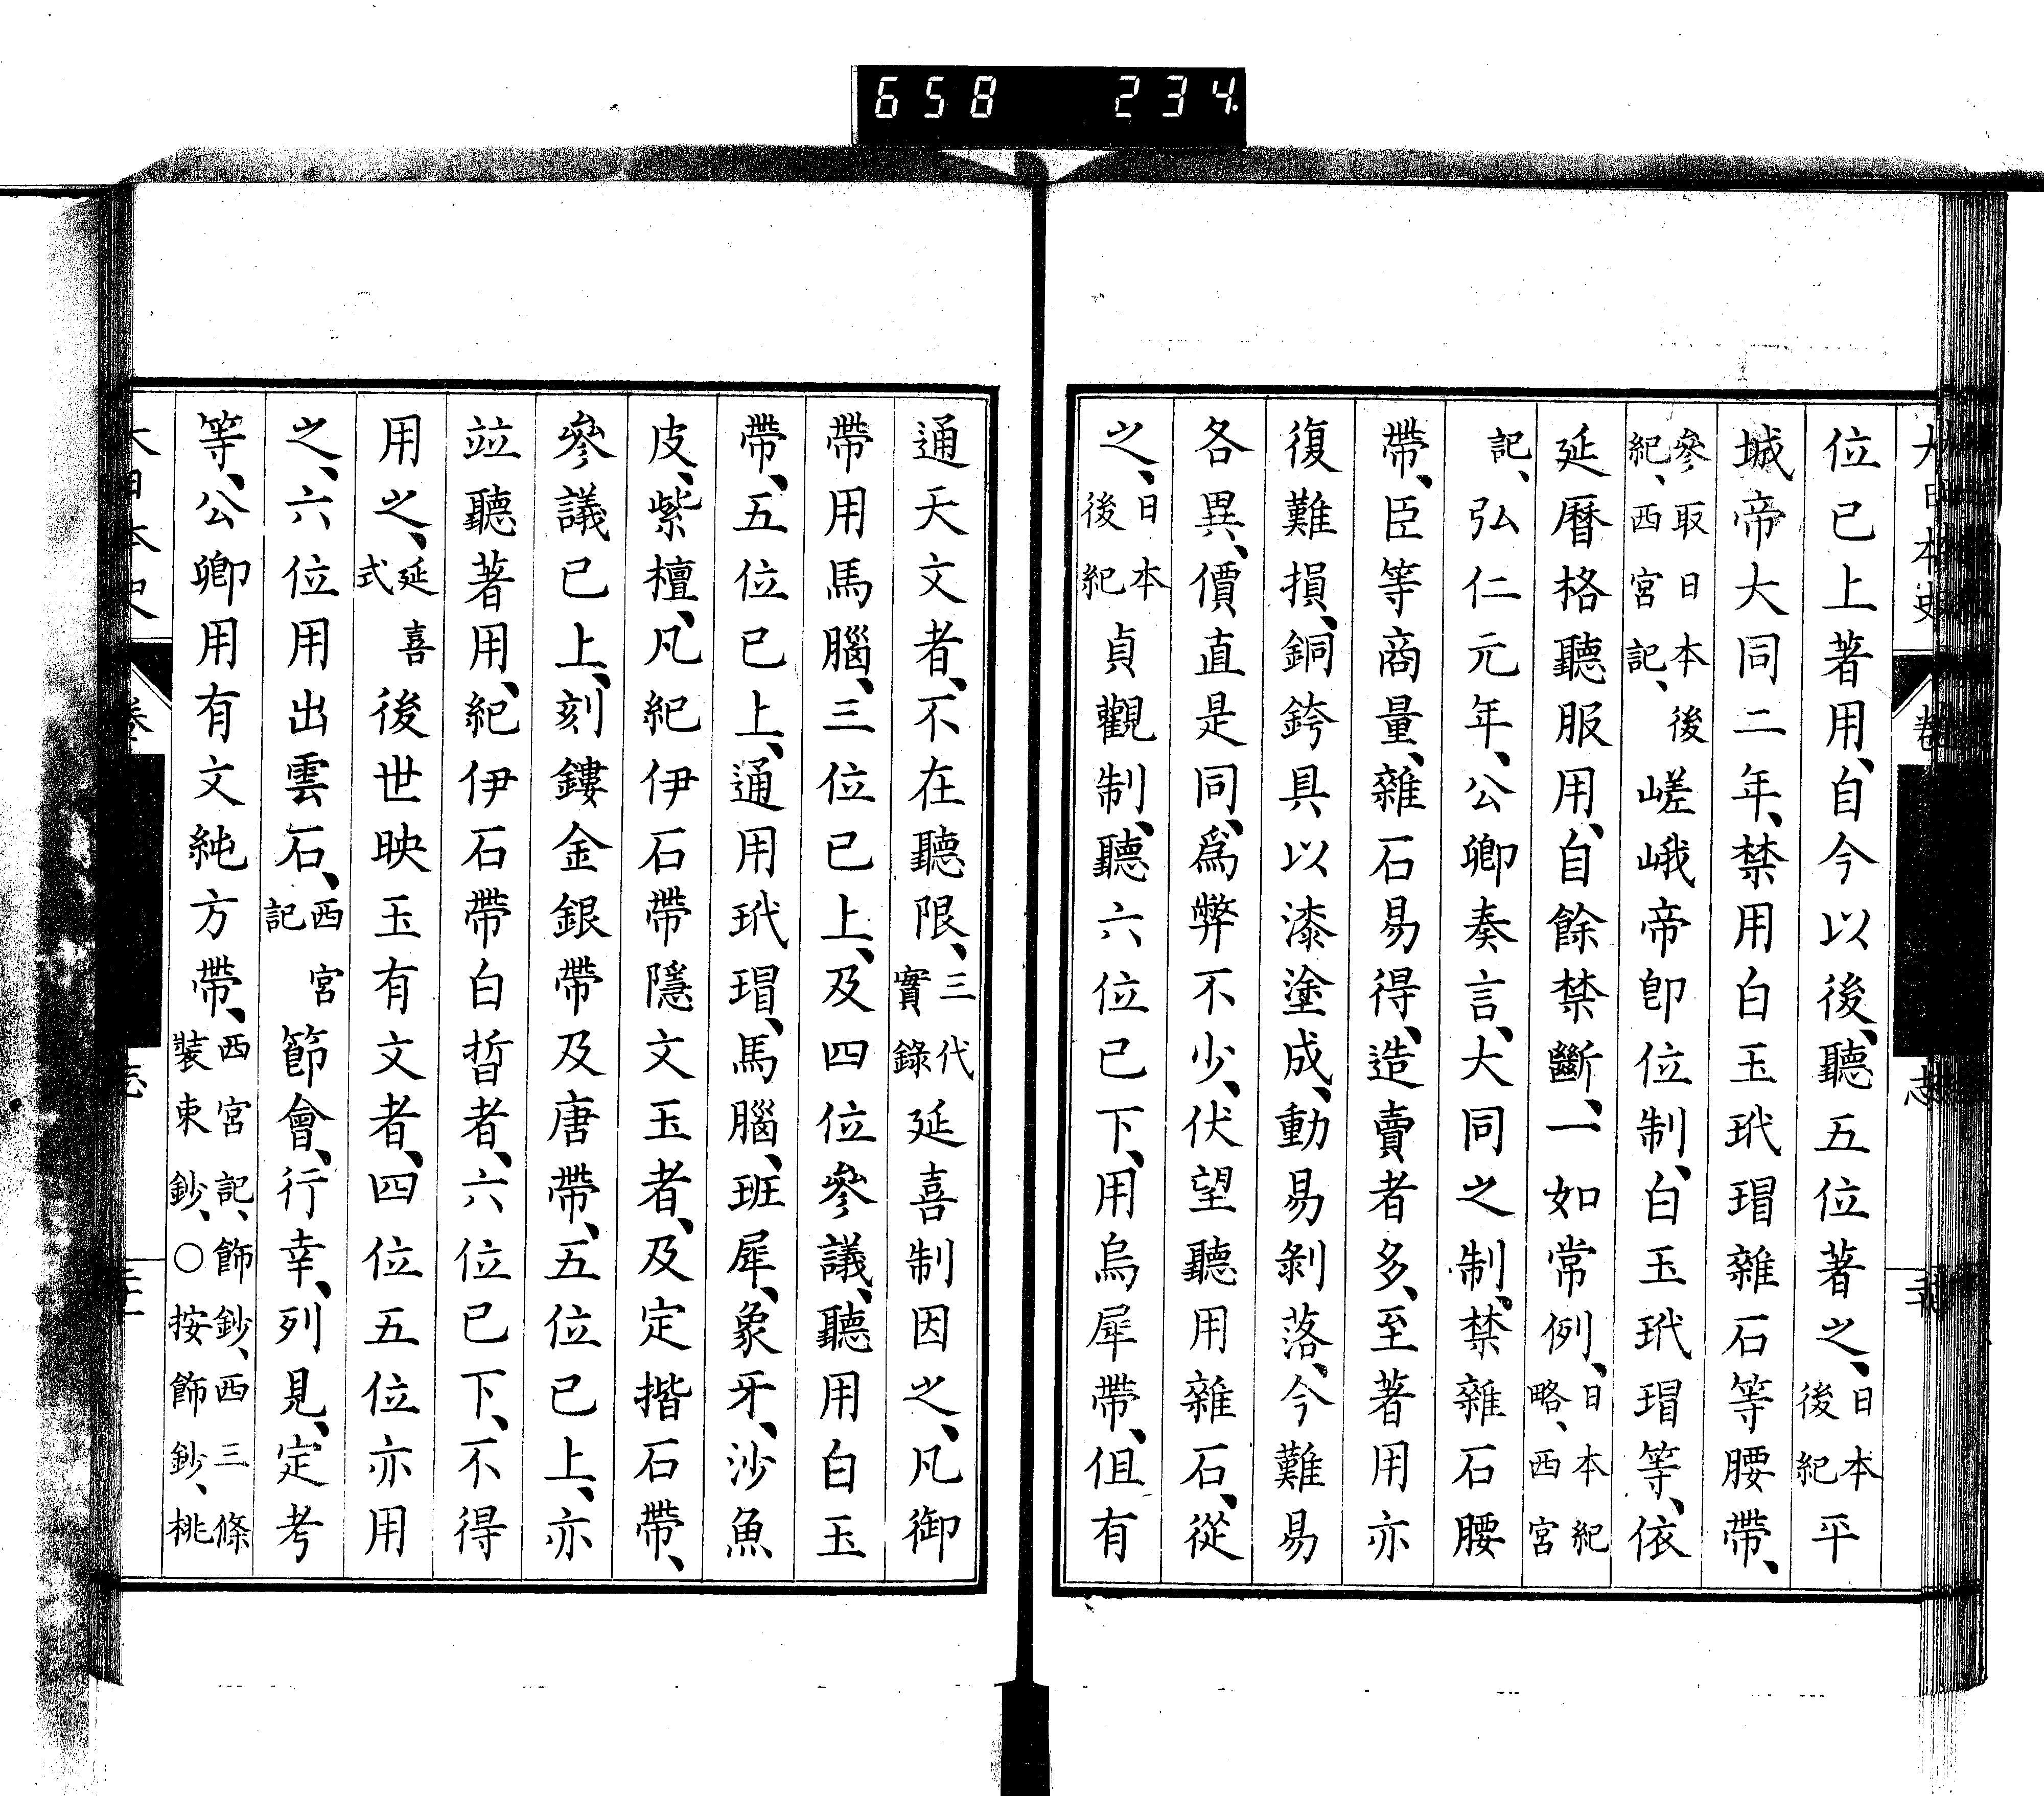 658 234
位已上著用、自今以後、聽五位著之、日本後紀平
城帝大同二年、禁用白玉玳瑁雜石等腰帶、
參取日本後紀、西宮記、嵯峨帝卽位制、白玉玳瑁等、依
延曆格聽服用、自餘禁斷、一如常例、日本紀略、西宮
記、弘仁元年、公卿奏言、大同之制、禁雜石腰
帶、臣等商量、雜石易得、造賣者多、至著用亦
復難損、銅銙具以漆塗成、動易剝落、今難易
各異、價直是同、爲弊不少、伏望聽用雜石、從
之、日本後紀貞觀制、聽六位已下、用烏犀帶、但有
通天文者、不在聽限、三代實錄延喜制因之、凡御
帶用馬腦、三位已上、及四位參議、聽用白玉
帶、五位已上、通用玳瑁、馬腦、班犀、象牙、沙魚
皮、紫檀、凡紀伊石帶隱文玉者、及定揩石帶、
參議已上、刻鏤金銀帶及唐帶、五位已上、亦
竝聽著用、紀伊石帶白晳者、六位已下、不得
用之、延喜式後世映玉有文者、四位五位亦用
之、六位用出雲石、西宮記節會、行幸、列見、定考
等、公卿用有文純方帶、西宮記、飾鈔、西三條裝束鈔、○按飾鈔、桃
大日本史